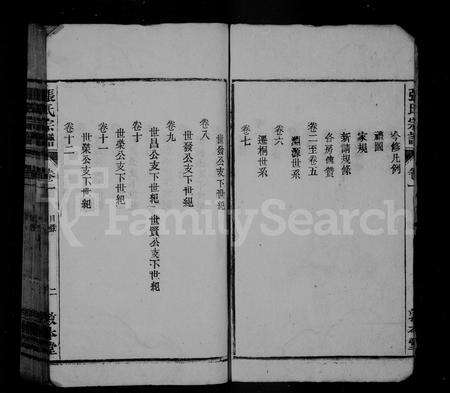 張氏宗譜 卷一
今修凡例
禮圖
家規
新議規條
卷二至卷五
各房傳贊
卷六
淵源世系
卷七
遷桐世系
世發公支下世紀
卷八
世發公支下世紀
卷九
世昌公支下世紀 世賢公支下世紀
卷十
世榮公支下世紀
卷十一
世榮公支下世紀
卷十二
張氏宗譜 卷一 目錄 二 敦本堂
FamilySearch